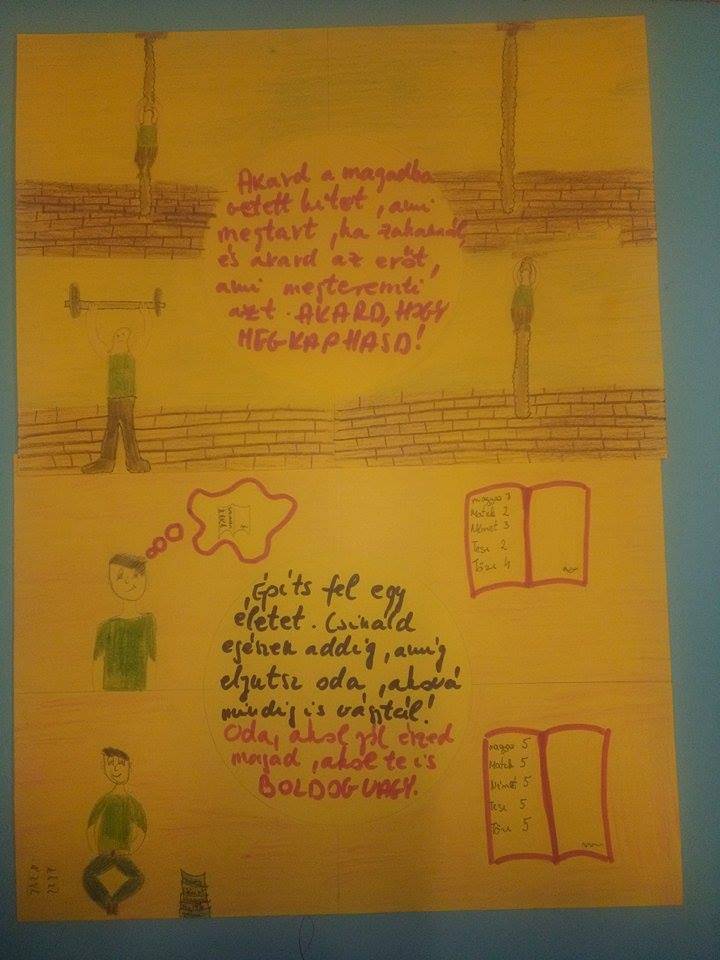 Akard a magadba
vetett hitet, ami
megtart, ha zuhannál,
és akard az erőt,
ami megteremti
azt. AKARD, HOGY
MEGKAPHASD!
magyar 3
Matek 2
Német 3
Tesi 2
Töri 4
Építs fel egy
életet. Csináld
egészen addig, amíg
eljutsz oda, ahová
mindig is vágytál!
Oda, ahol jól érzed
magad, ahol te is
BOLDOG VAGY.
magyar 5
Matek 5
Német 5
Tesi 5
Töri 5